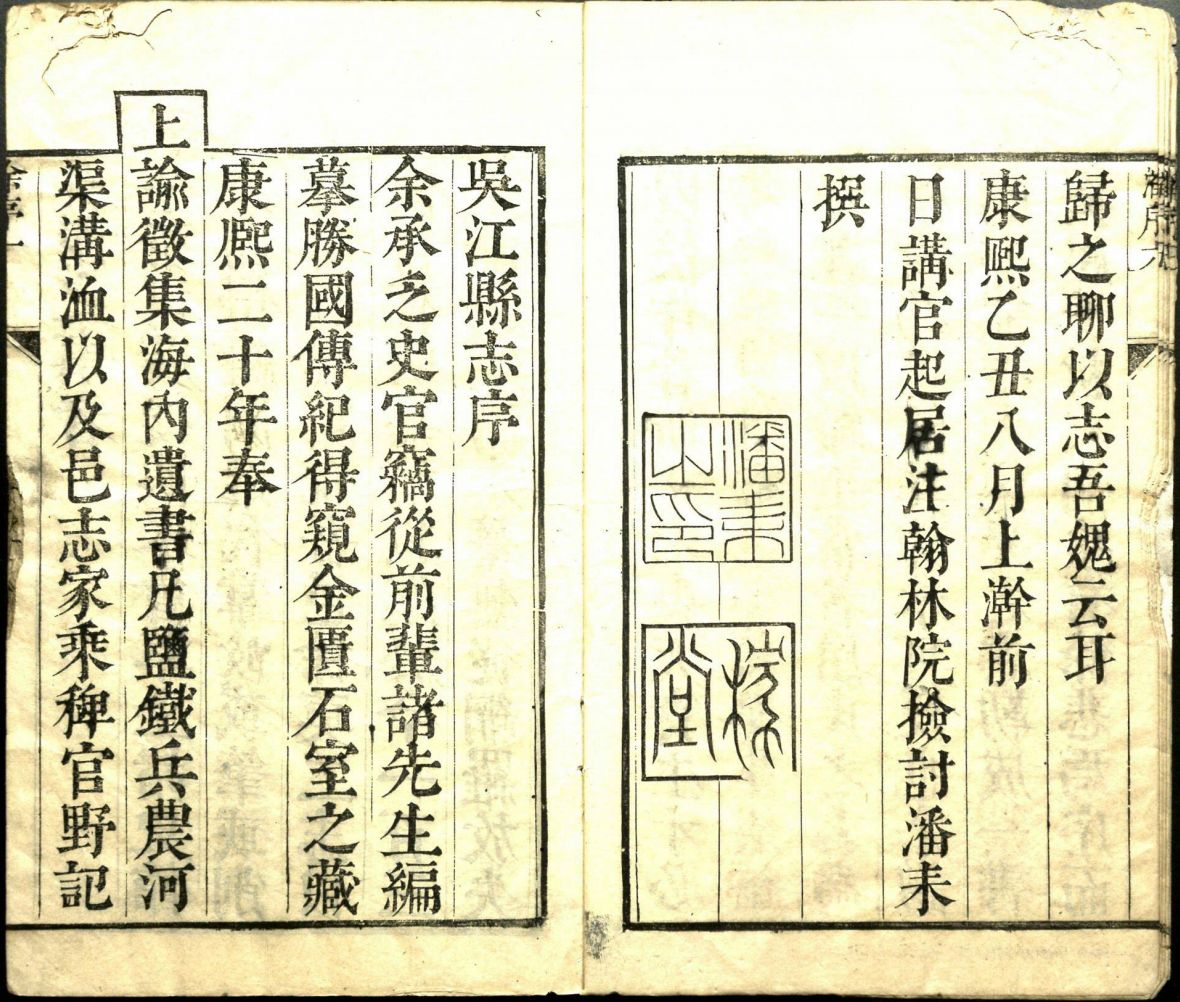 歸之聊以志吾媿云耳
康熙乙丑八月上澣前
日講官起居注翰林院檢討潘耒
撰
潘耒
之印
堂
吳江縣志序
余承乏史官竊從前輩諸先生編
摹勝國傳紀得窺金匱石室之藏
康熙二十年奉
上諭徵集海內遺書凡鹽鐵兵農河
渠溝洫以及邑志家乘稗官野記